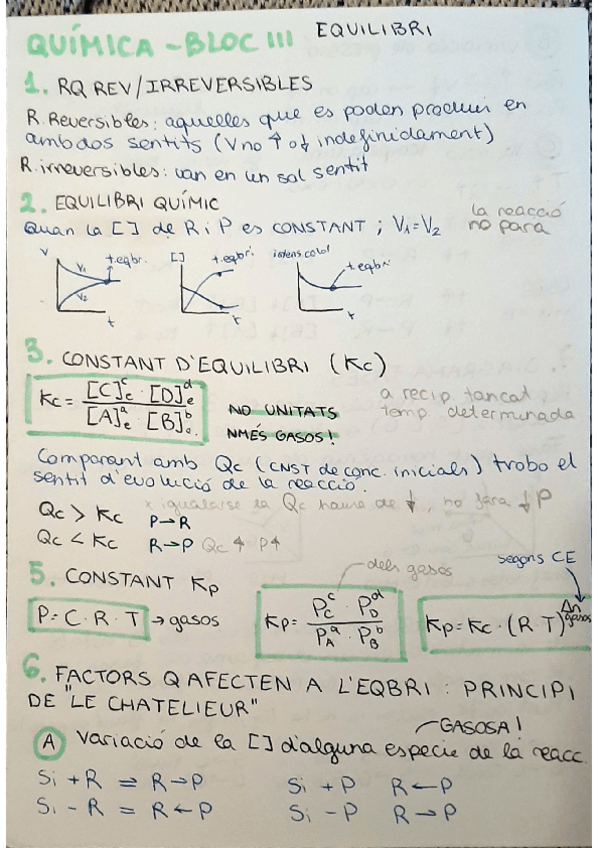 QUÍMICA - BLOC III EQUILIBRI
1. RQ REV/IRREVERSIBLES
R. Reversibles: aquelles que es poden produir en
ambdós sentits (V no ↑ o ↓ indefinidament)
R. irreversibles: van en un sol sentit
2. EQUILIBRI QUÍMIC
Quan la [] de R i P es CONSTANT ; V₁=V₂ la reacció no para
V V₁ V₂ t.eqbr. t
[] t.eqbr. t
intens.color t.eqbr. t
3. CONSTANT D'EQUILIBRI (Kc)
Kc = [C]ᶜₑ · [D]ᵈₑ / [A]ᵃₑ · [B]ᵇₑ
NO UNITATS
NMÉS GASOS!
a recip. tancat,
temp. determinada
Comparant amb Qc (CNST de conc. inicials) trobo el
sentit d'evolució de la reacció.
x igualarse la Qc haurà de ↓, no farà ↓ P
Qc > Kc P→R
Qc < Kc R→P Qc ↑ P↑
5. CONSTANT Kp
dels gasos
segons CE
P = C · R · T → gasos
Kp = Pcᶜ · P_Dᵈ / P_Aᵃ · P_Bᵇ
Kp = Kc · (R·T)^Δn gasos
6. FACTORS Q AFECTEN A L'EQBRI : PRINCIPI
DE "LE CHATELIEUR"
GASOSA!
A Variació de la [] d'alguna especie de la reacc.
Si + R = R→P Si + P R←P
Si - R = R←P Si - P R→P